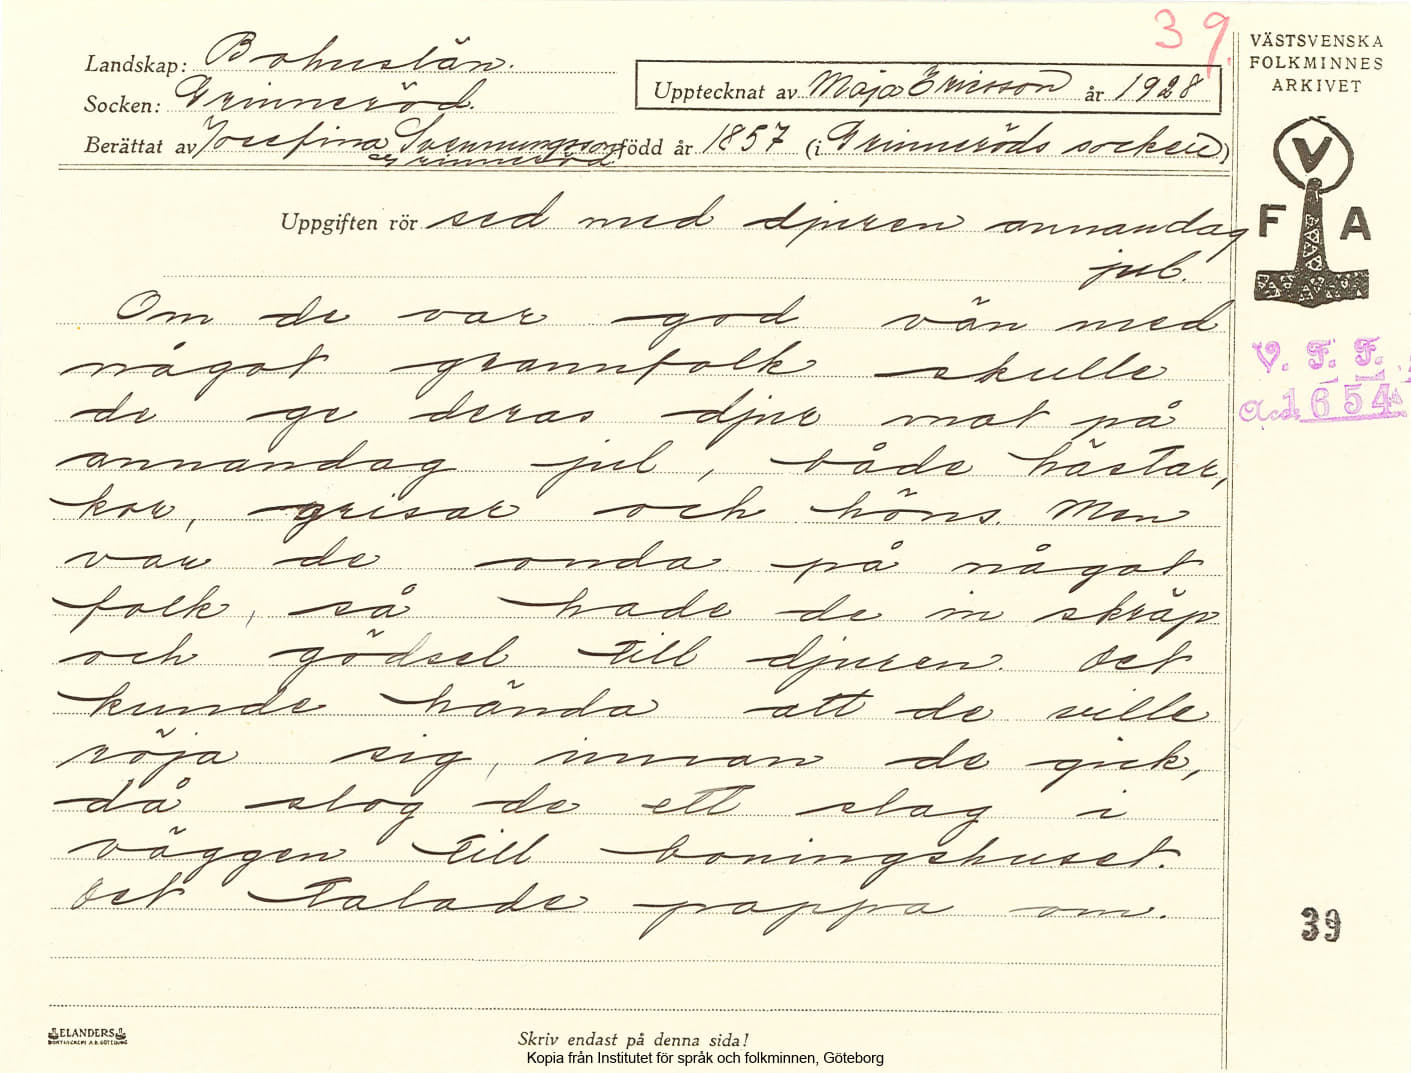 39.
VÄSTSVENSKA
FOLKMINNES
ARKIVET
Landskap: Bohuslän.
Upptecknat av Maja Ericsson år 1928
Socken: Grinneröd.
Berättat av Josefina Svenningsson född år 1857 (i Grinneröds socken)
Grinneröd
V
F A
Uppgiften rör sed med djuren annandag
jul.
Om de var god vän med
något grannfolk skulle
de ge deras djur mat på
annandag jul, både hästar,
kor, grisar och höns. Men
var de onda på något
folk, så hade de in skräp
och gödsel till djuren. Det
kunde hända att de ville
röja sig, innan de gick,
då slog de ett slag i
väggen till boningshuset.
Det talade pappa om.
V. F. F.
Acc. 1654
39
ELANDERS
Skriv endast på denna sida!
Kopia från Institutet för språk och folkminnen, Göteborg